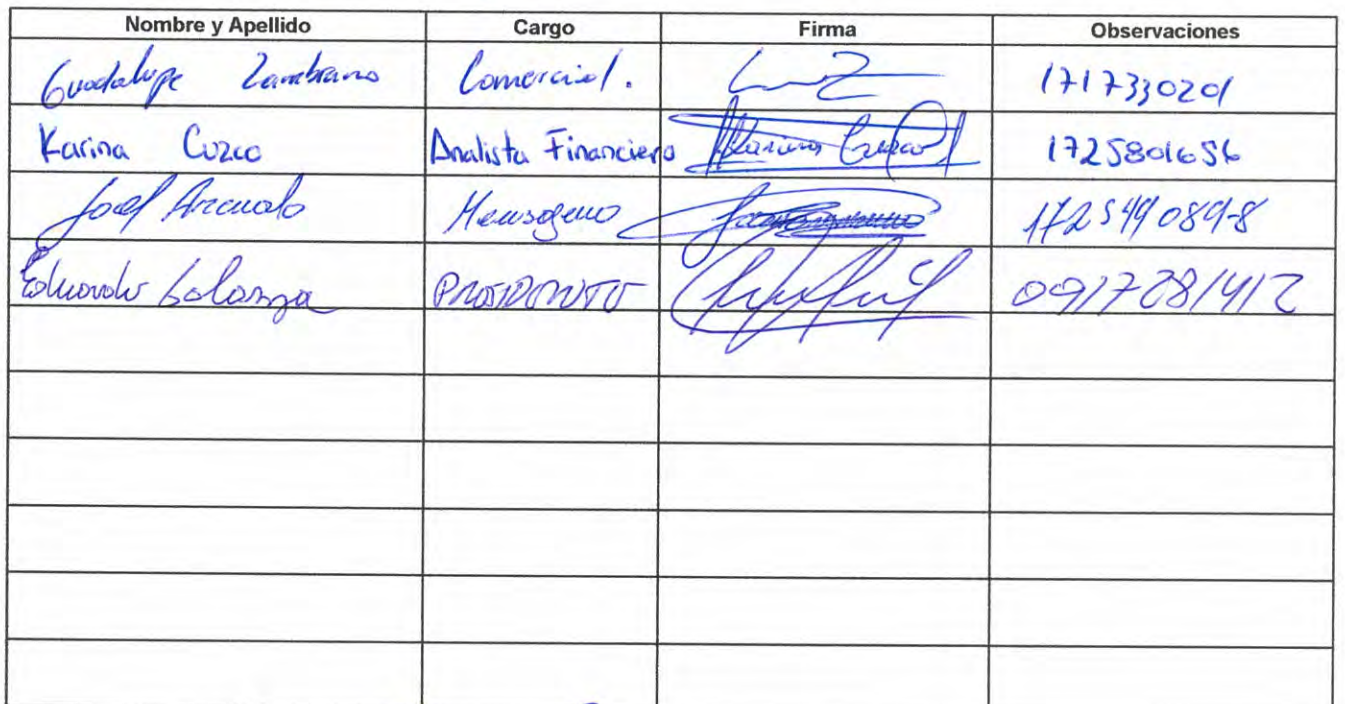 Nombre y Apellido Cargo Firma Observaciones
Guadalupe Zambrano Comercial. 1717330201
Karina Cuzco Analista Financiero Karina Cuzco 1725801656
Joel Mensajero
Eduardo 0917281412